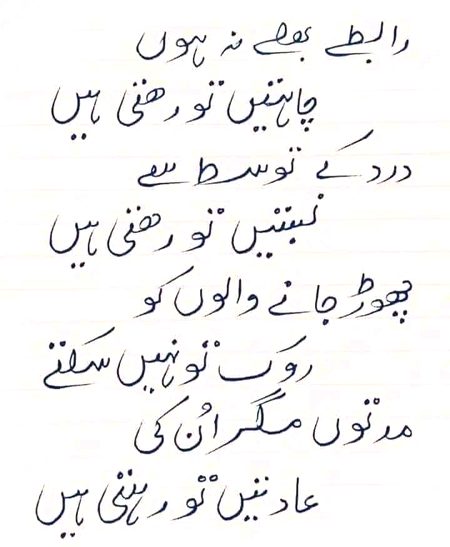 رابطے بھلے نہ ہوں
چاہتیں تو رہتی ہیں
درد کے توسط سے
نسبتیں تو رہتی ہیں
چھوڑ جانے والوں کو
روک تو نہیں سکتے
مدتوں مگر اُن کی
عادتیں تو رہتی ہیں